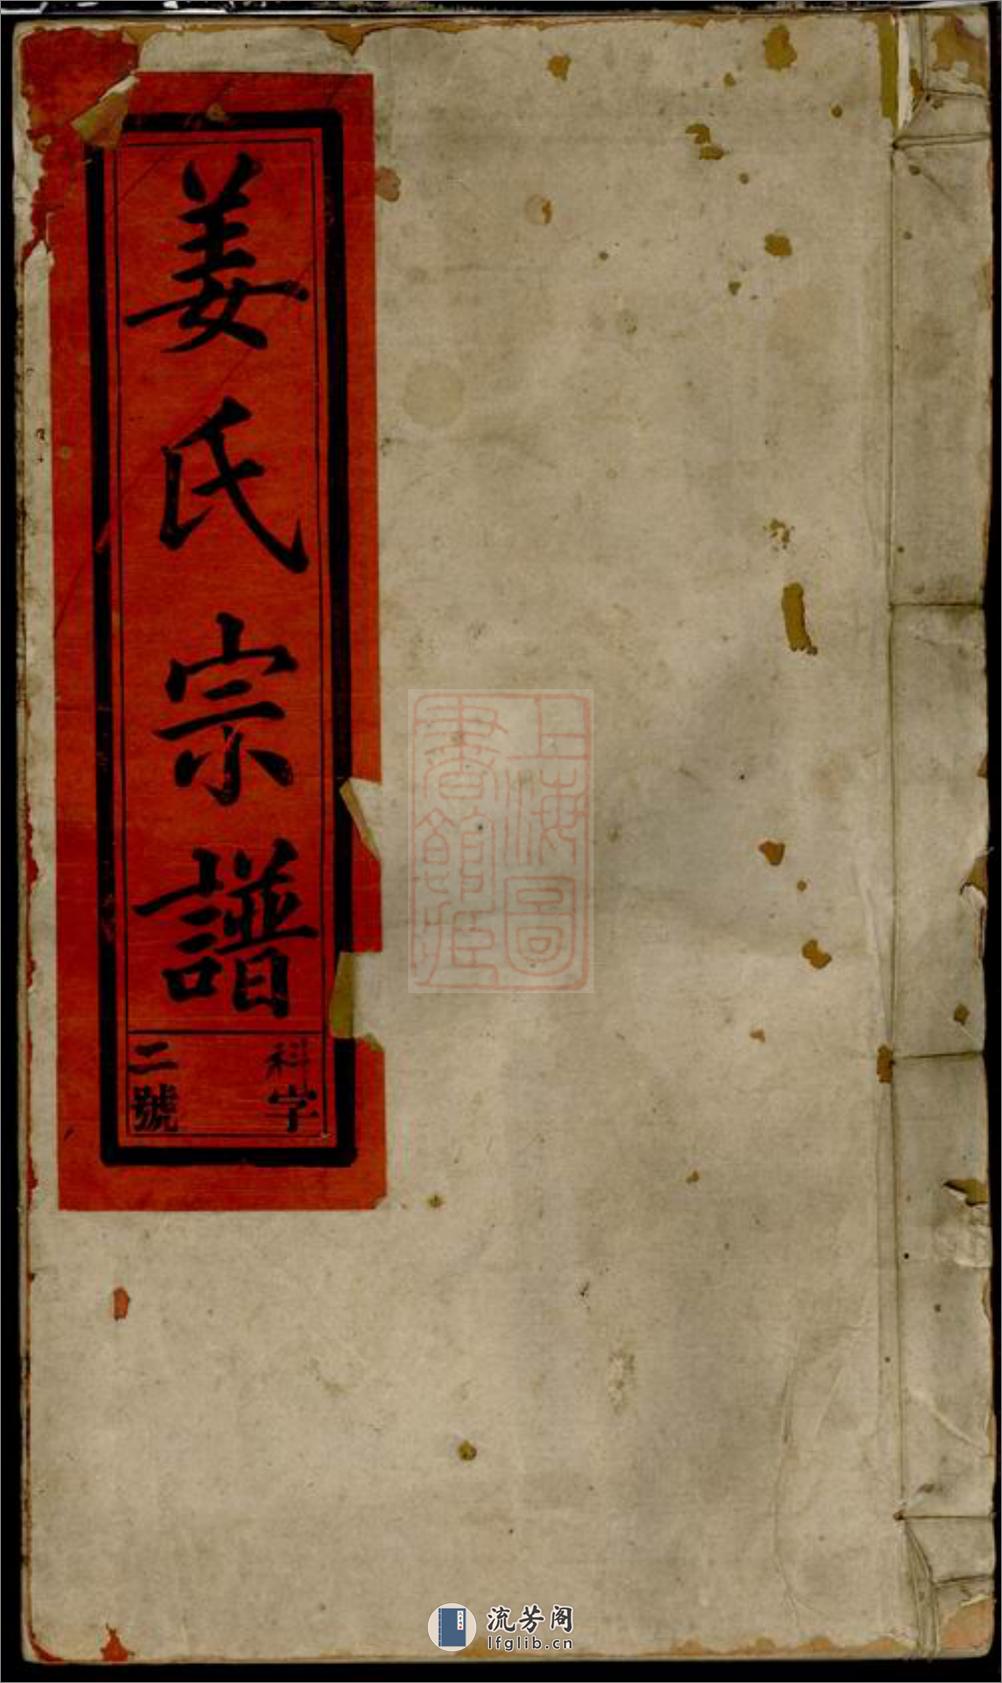 姜氏宗譜
科字
二號
上海圖
書館藏
流芳阁
lfglib.cn